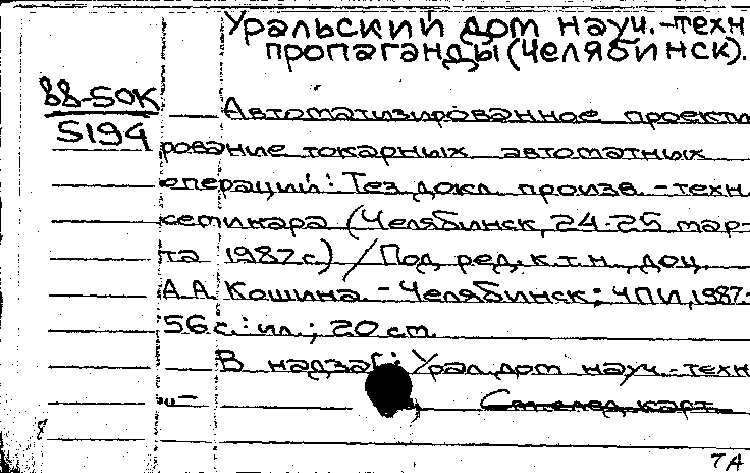 Уральский дом науч.-техн
пропаганды (Челябинск).
88-50К
5194
Автоматизированное проекти
рование токарных автоматных
операций: Тез. докл. произв.-техн.
семинара (Челябинск, 24-25 мар-
та 1987 г.) / Под ред. к.т.н., доц.
А.А. Кошина. - Челябинск: ЧПИ, 1987.
56 с.: ил.; 20 см.
В надзаг.: Урал. дом науч.-техн
См. след. карт.
7А